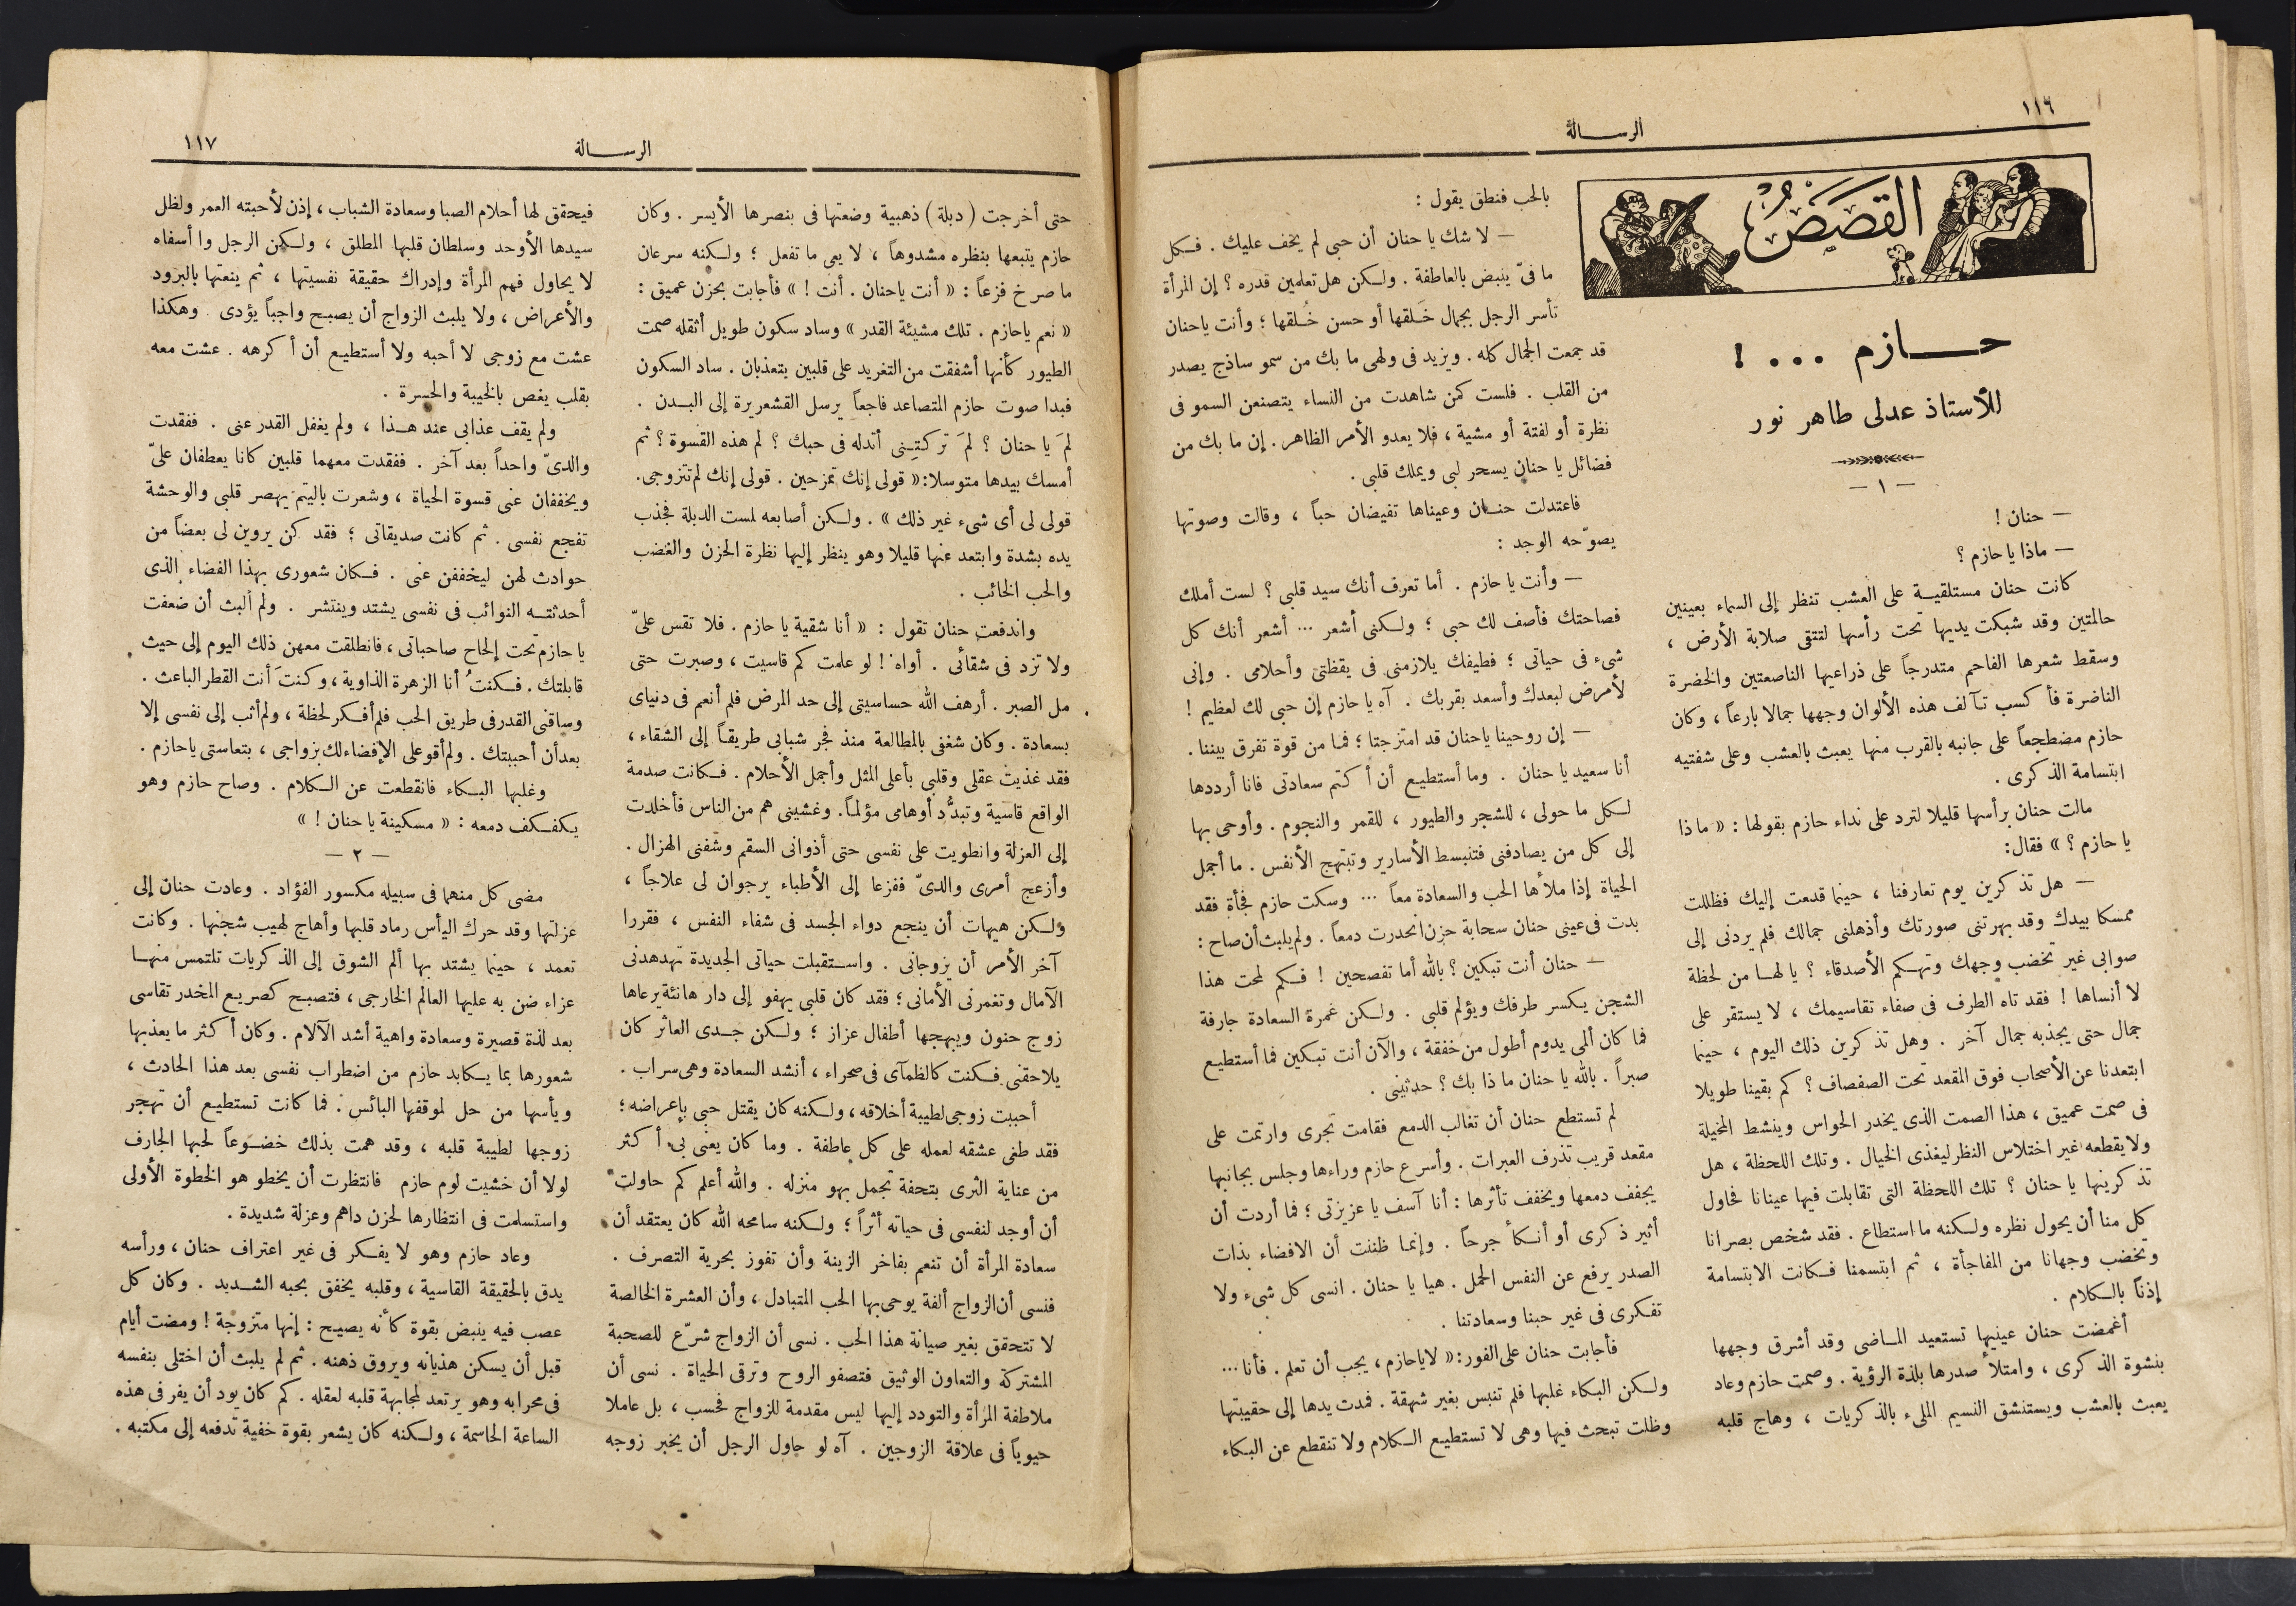 ١١٦
الرسالة
القصص
حازم ... !
للأستاذ عدلى طاهر نور
— ١ —
— حنان !
— ماذا يا حازم ؟
كانت حنان مستلقية على العشب تنظر إلى السماء بعينين
حالمتين وقد شبكت يديها تحت رأسها لتتقى صلابة الأرض ،
وسقط شعرها الفاحم متدرجاً على ذراعيها الناصعتين والخضرة
الناضرة فأكسب تآلف هذه الألوان وجهها جمالا بارعاً ، وكان
حازم مضطجعاً على جانبه بالقرب منها يعبث بالعشب وعلى شفتيه
ابتسامة الذكرى .
مالت حنان برأسها قليلا لترد على نداء حازم بقولها : « ماذا
يا حازم ؟ » فقال:
— هل تذكرين يوم تعارفنا ، حينما قدمت إليك فظللت
ممسكا بيدك وقد بهرتنى صورتك وأذهلنى جمالك فلم يردنى إلى
صوابى غير تخضب وجهك وتهكم الأصدقاء ؟ يا لها من لحظة
لا أنساها ! فقد تاه الطرف فى صفاء تقاسيمك ، لا يستقر على
جمال حتى يجذبه جمال آخر . وهل تذكرين ذلك اليوم ، حينما
ابتعدنا عن الأصحاب فوق المقعد تحت الصفصاف ؟ كم بقينا طويلا
فى صمت عميق ، هذا الصمت الذى يخدر الحواس وينشط المخيلة
ولا يقطعه غير اختلاس النظر ليغذى الخيال . وتلك اللحظة ، هل
تذكرينها يا حنان ؟ تلك اللحظة التى تقابلت فيها عينانا فحاول
كل منا أن يحول نظره ولكنه ما استطاع . فقد شخص بصرانا
وتخضب وجهانا من المفاجأة ، ثم ابتسمنا فكانت الابتسامة
إذناً بالكلام .
أغمضت حنان عينيها تستعيد الماضى وقد أشرق وجهها
بنشوة الذكرى ، وامتلأ صدرها بلذة الرؤية . وصمت حازم وعاد
يعبث بالعشب ويستنشق النسيم الملىء بالذكريات ، وهاج قلبه
بالحب فنطق يقول :
— لا شك يا حنان أن حبى لم يخف عليك . فكل
ما فىّ ينبض بالعاطفة . ولكن هل تعلمين قدره ؟ إن المرأة
تأسر الرجل بجمال خَلقها أو حسن خُلقها ؛ وأنت يا حنان
قد جمعت الجمال كله . ويزيد فى ولهى ما بك من سمو ساذج يصدر
من القلب . فلست كمن شاهدت من النساء يتصنعن السمو فى
نظرة أو لفتة أو مشية ، فلا يعدو الأمر الظاهر . إن ما بك من
فضائل يا حنان يسحر لبى ويملك قلبى .
فاعتدلت حنان وعيناها تفيضان حباً ، وقالت وصوتها
يصوّحه الوجد :
— وأنت يا حازم . أما تعرف أنك سيد قلبى ؟ لست أملك
فصاحتك فأصف لك حبى ؛ ولكنى أشعر ... أشعر أنك كل
شىء فى حياتى ؛ فطيفك يلازمنى فى يقظتى وأحلامى . وإنى
لأمرض لبعدك وأسعد بقربك . آه يا حازم إن حبى لك لعظيم !
— إن روحينا يا حنان قد امتزجتا ؛ فما من قوة تفرق بيننا .
أنا سعيد يا حنان . وما أستطيع أن أكتم سعادتى فانا أرددها
لكل ما حولى ، للشجر والطيور ، للقمر والنجوم . وأوحى بها
إلى كل من يصادفنى فتنبسط الأسارير وتبتهج الأنفس . ما أجمل
الحياة إذا ملأها الحب والسعادة معاً ... وسكت حازم فجأة فقد
بدت فى عينى حنان سحابة حزن انحدرت دمعاً . ولم يلبث أن صاح :
— حنان أنت تبكين ؟ بالله أما تفصحين ! فكم لمحت هذا
الشجن يكسر طرفك ويؤلم قلبى . ولكن غمرة السعادة جارفة
فما كان ألمى يدوم أطول من خفقة ، والآن أنت تبكين فما أستطيع
صبراً . بالله يا حنان ما ذا بك ؟ حدثينى .
لم تستطع حنان أن تغالب الدمع فقامت تجرى وارتمت على
مقعد قريب تذرف العبرات . وأسرع حازم وراءها وجلس بجانبها
يجفف دمعها ويخفف تأثرها : أنا آسف يا عزيزتى ؛ فما أردت أن
أثير ذكرى أو أنكأ جرحاً . وإنما ظننت أن الافضاء بذات
الصدر يرفع عن النفس الحمل . هيا يا حنان . انسى كل شىء ولا
تفكرى فى غير حبنا وسعادتنا .
فأجابت حنان على الفور: « لا يا حازم ، يجب أن تعلم . فأنا ...
ولكن البكاء غلبها فلم تنبس بغير شهقة . فمدت يدها إلى حقيبتها
وظلت تبحث فيها وهى لا تستطيع الكلام ولا تنقطع عن البكاء
الرسالة
١١٧
حتى أخرجت (دبلة) ذهبية وضعتها فى بنصرها الأيسر . وكان
حازم يتبعها بنظره مشدوهاً ، لا يعى ما تفعل ؛ ولكنه سرعان
ما صرخ فزعاً : « أنت يا حنان . أنت ! » فأجابت بحزن عميق :
« نعم يا حازم . تلك مشيئة القدر » وساد سكون طويل أثقله صمت
الطيور كأنها أشفقت من التغريد على قلبين يتعذبان . ساد السكون
فبدا صوت حازم المتصاعد فاجعاً يرسل القشعريرة إلى البدن .
لمَ يا حنان ؟ لمَ تركتِنى أتدله فى حبك ؟ لم هذه القسوة ؟ ثم
أمسك بيدها متوسلا: « قولى إنك تمزحين . قولى إنك لم تتزوجى.
قولى لى أى شىء غير ذلك » . ولكن أصابعه لمست الدبلة فجذب
يده بشدة وابتعد عنها قليلا وهو ينظر إليها نظرة الحزن والغضب
والحب الخائب .
واندفعت حنان تقول : « أنا شقية يا حازم . فلا تقس علىّ
ولا تزد فى شقائى . أواه ! لو علمت كم قاسيت ، وصبرت حتى
مل الصبر . أرهف الله حساسيتى إلى حد المرض فلم أنعم فى دنياى
بسعادة . وكان شغفى بالمطالعة منذ فجر شبابى طريقاً إلى الشقاء ،
فقد غذيت عقلى وقلبى بأعلى المثل وأجمل الأحلام . فكانت صدمة
الواقع قاسية وتبدُّد أوهامى مؤلماً. وغشينى هم من الناس فأخلدت
إلى العزلة وانطويت على نفسى حتى أذوانى السقم وشفنى الهزال .
وأزعج أمرى والدىّ ففزعا إلى الأطباء يرجوان لى علاجاً ،
ولكن هيهات أن ينجع دواء الجسد فى شفاء النفس ، فقررا
آخر الأمر أن يزوجانى . واستقبلت حياتى الجديدة تهدهدنى
الآمال وتغمرنى الأمانى ؛ فقد كان قلبى يهفو إلى دار هانئة يرعاها
زوج حنون ويبهجها أطفال عزاز ؛ ولكن جدى العاثر كان
يلاحقنى فكنت كالظمآى فى صحراء ، أنشد السعادة وهى سراب .
أحببت زوجى لطيبة أخلاقه ، ولكنه كان يقتل حبى بإعراضه ؛
فقد طغى عشقه لعمله على كل عاطفة . وما كان يعنى بى أكثر
من عناية الثرى بتحفة تجمل بهو منزله . والله أعلم كم حاولت
أن أوجد لنفسى فى حياته أثراً ؛ ولكنه سامحه الله كان يعتقد أن
سعادة المرأة أن تنعم بفاخر الزينة وأن تفوز بحرية التصرف .
فنسى أن الزواج ألفة يوحى بها الحب المتبادل ، وأن العشرة الخالصة
لا تتحقق بغير صيانة هذا الحب . نسى أن الزواج شرّع للصحبة
المشتركة والتعاون الوثيق فتصفو الروح وترقى الحياة . نسى أن
ملاطفة المرأة والتودد إليها ليس مقدمة للزواج فحسب ، بل عاملا
حيوياً فى علاقة الزوجين . آه لو حاول الرجل أن يخبر زوجه
فيحقق لها أحلام الصبا وسعادة الشباب ، إذن لأحبته العمر ولظل
سيدها الأوحد وسلطان قلبها المطلق ، ولكن الرجل وا أسفاه
لا يحاول فهم المرأة وإدراك حقيقة نفسيتها ، ثم ينعتها بالبرود
والأعراض ، ولا يلبث الزواج أن يصبح واجباً يؤدى وهكذا
عشت مع زوجى لا أحبه ولا أستطيع أن أكرهه . عشت معه
بقلب يغص بالخيبة والحسرة .
ولم يقف عذابى عند هذا ، ولم يغفل القدر عنى . ففقدت
والدىّ واحداً بعد آخر . ففقدت معهما قلبين كانا يعطفان علىّ
ويخففان عنى قسوة الحياة ، وشعرت باليتم يهصر قلبى والوحشة
تفجع نفسى . ثم كانت صديقاتى ؛ فقد كن يروين لى بعضاً من
حوادث لهن ليخففن عنى . فكان شعورى بهذا الفضاء الذى
أحدثته النوائب فى نفسى يشتد وينتشر . ولم ألبث أن ضعفت
يا حازم تحت إلحاح صاحباتى ، فانطلقت معهن ذلك اليوم إلى حيث
قابلتك . فكنتُ أنا الزهرة الذاوية ، وكنتَ أنت القطر الباعث .
وساقنى القدر فى طريق الحب فلم أفكر لحظة ، ولم أثب إلى نفسى إلا
بعد أن أحببتك . ولم أقو على الإفضاء لك بزواجى ، بتعاستى يا حازم .
وغلبها البكاء فانقطعت عن الكلام . وصاح حازم وهو
يكفكف دمعه : « مسكينة يا حنان ! »
— ٢ —
مضى كل منهما فى سبيله مكسور الفؤاد . وعادت حنان إلى
عزلتها وقد حرك اليأس رماد قلبها وأهاج لهيب شجنها . وكانت
تعمد ، حينما يشتد بها ألم الشوق إلى الذكريات تلتمس منها
عزاء ضن به عليها العالم الخارجى ، فتصبح كصريع المخدر تقاسى
بعد لذة قصيرة وسعادة واهية أشد الآلام . وكان أكثر ما يعذبها
شعورها بما يكابد حازم من اضطراب نفسى بعد هذا الحادث ،
ويأسها من حل لموقفها البائس . فما كانت تستطيع أن تهجر
زوجها لطيبة قلبه ، وقد همت بذلك خضوعاً لحبها الجارف
لولا أن خشيت لوم حازم فانتظرت أن يخطو هو الخطوة الأولى
واستسلمت فى انتظارها لحزن داهم وعزلة شديدة .
وعاد حازم وهو لا يفكر فى غير اعتراف حنان ، ورأسه
يدق بالحقيقة القاسية ، وقلبه يخفق بحبه الشديد . وكان كل
عصب فيه ينبض بقوة كأنه يصيح : إنها متزوجة ! ومضت أيام
قبل أن يسكن هذيانه ويروق ذهنه . ثم لم يلبث أن اختلى بنفسه
فى محرابه وهو يرتعد لمجابهة قلبه لعقله . كم كان يود أن يفر فى هذه
الساعة الحاسمة ، ولكنه كان يشعر بقوة خفية تدفعه إلى مكتبه .